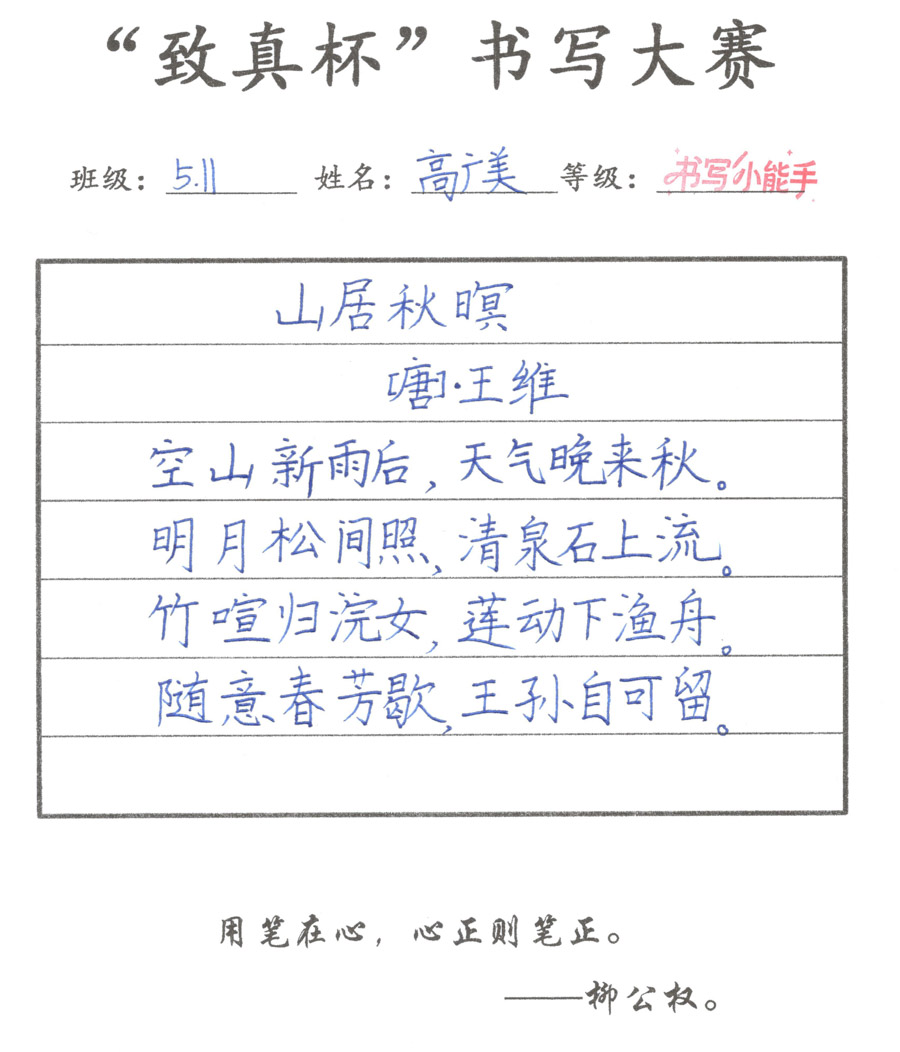 “致真杯”书写大赛
班级：5.11 姓名：高广美 等级：书写小能手
山居秋暝
[唐]·王维
空山新雨后，天气晚来秋。
明月松间照，清泉石上流。
竹喧归浣女，莲动下渔舟。
随意春芳歇，王孙自可留。
用笔在心，心正则笔正。
——柳公权。